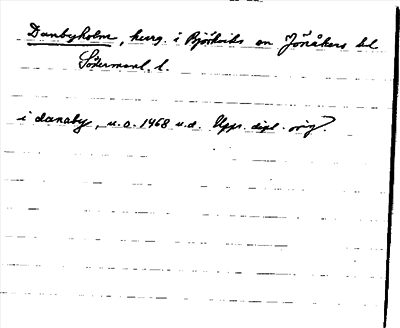 Danbyholm, herrg. i Björkviks sn Jönåkers hd
Södermanl. l.
i danaby, u.o. 1468 u.d. Upps. dipl. orig.